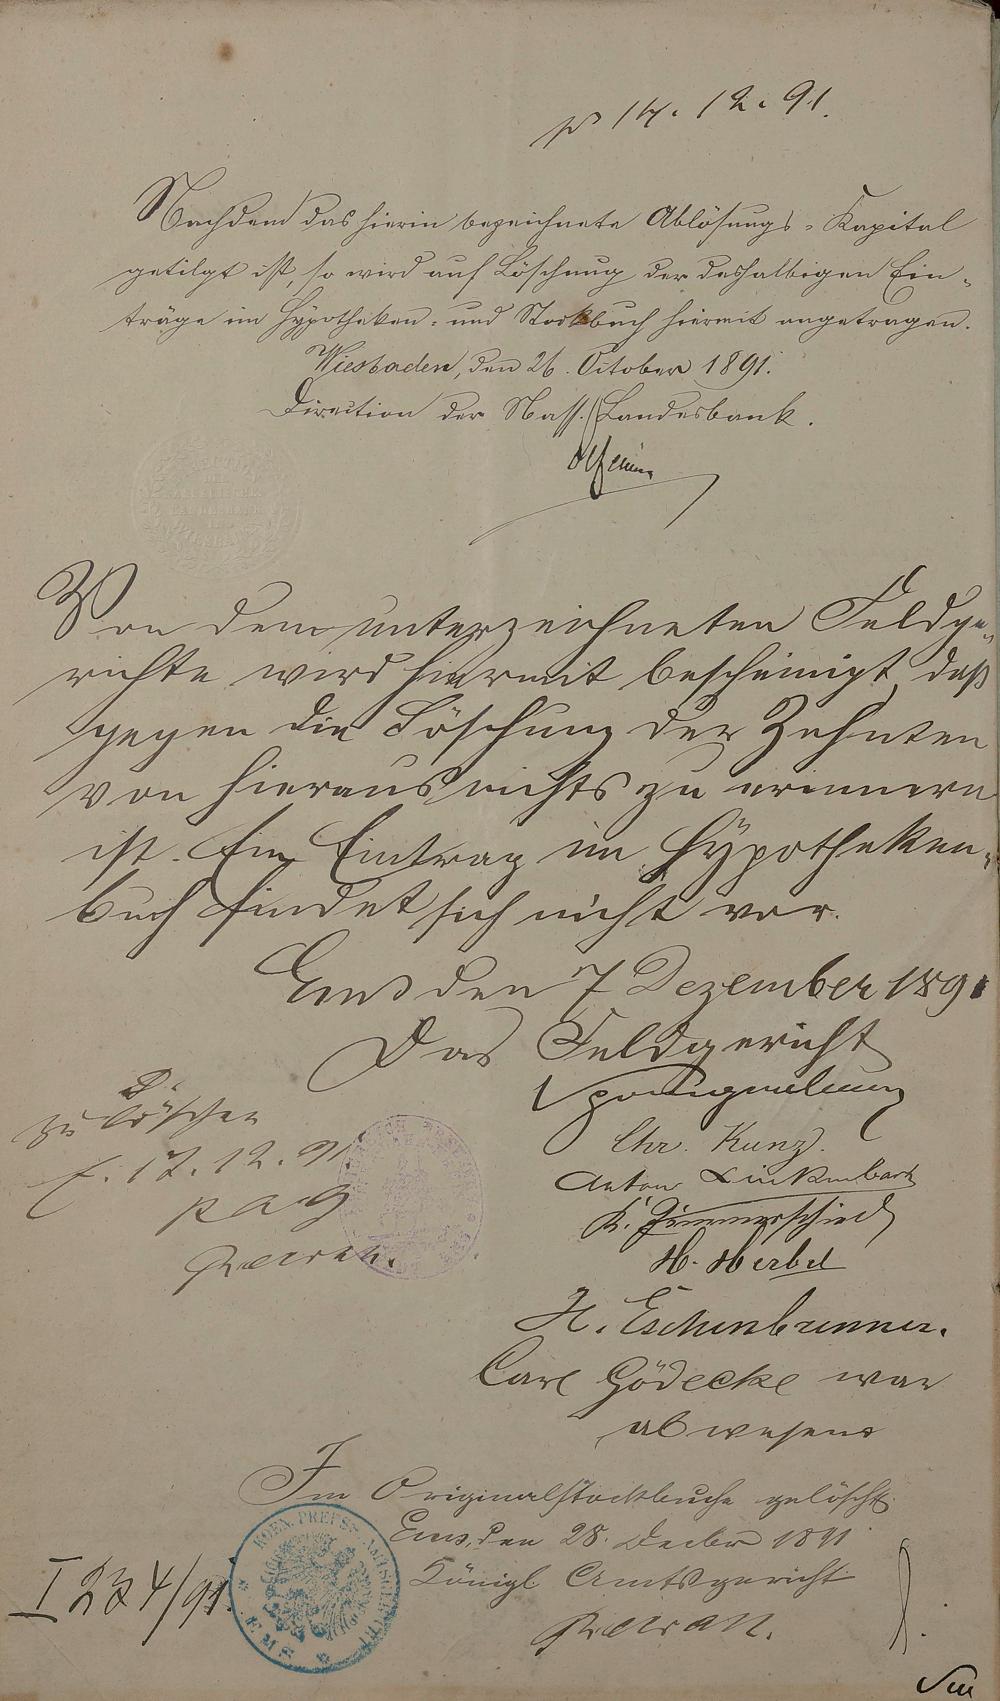 pr 14. 12. 91.
Nachdem das hierin bezeichnete Ablösungs-Kapital
getilgt ist, so wird auf Löschung der deshalbigen Ein-
träge im Hypotheken- und Stockbuch hiermit angetragen.
Wiesbaden, den 26. October 1891.
Direction der Nass. Landesbank.
Von dem unterzeichneten Feldge-
richte wird hiermit bescheinigt, daß
gegen die Löschung der Zehnten
von hieraus nichts zu erinnern
ist. Ein Eintrag im Hypotheken-
buch findet sich nicht vor.
Ems den 7 Dezember 1891
Das Feldgericht
Chr. Kunz.
Anton Linkenbach
K. Zimmerschied
H. Herbel
H. Eschenbrenner.
Carl Gödecke war
abwesend
zu löschen
E. 17. 12. 91
Im Originalstockbuche gelöscht.
Ems, den 28. Decbr 1891
Königl Amtsgericht
I 234/91.
KOEN. PREUSS. AMTSGERICHT
EMS